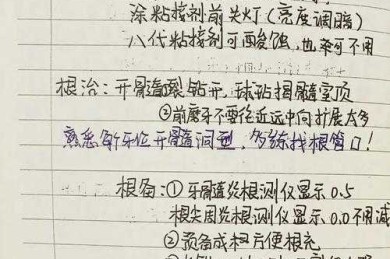 涂粘接剂前关灯（亮度调暗）
八代粘接剂可酸蚀，也可不用
根治：开髓 裂钻开，球钻揭髓室顶
②前磨牙不要往近远中向扩展太多
熟悉各牙位开髓洞型，多练找根管口！
根备：①牙髓炎根测仪显示0.5
根尖周炎根测仪显示0.0不用减
②预备成 方便根充